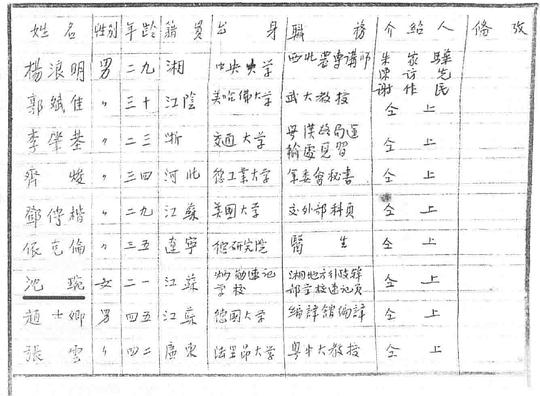 姓名 性別 年齡 籍貫 出身 職務 介紹人 備攷
楊浪明 男 二九 湘 中央大学 西北農專講師 朱家驊
陳訪先
謝作民
郭斌佳 〃 三十 江陰 美哈佛大学 武大教授 仝上
李肇基 〃 二三 浙 交通大学 粤漢路局運
輸處見習 仝上
齊焌 〃 三四 河北 德工業大学 軍委會秘書 仝上
鄧傳楷 〃 二九 江蘇 美國大学 交外部科員 仝上
侯克倫 〃 三五 遼寧 德研究院 醫生 仝上
沈琬 女 二一 江蘇 炳勛速记
学校 湘地方行政幹
部学校速记員 仝上
趙士卿 男 四五 江蘇 德國大学 編譯館編譯 仝上
張雲 〃 四二 廣東 法里昂大学 粤中大教授 仝上